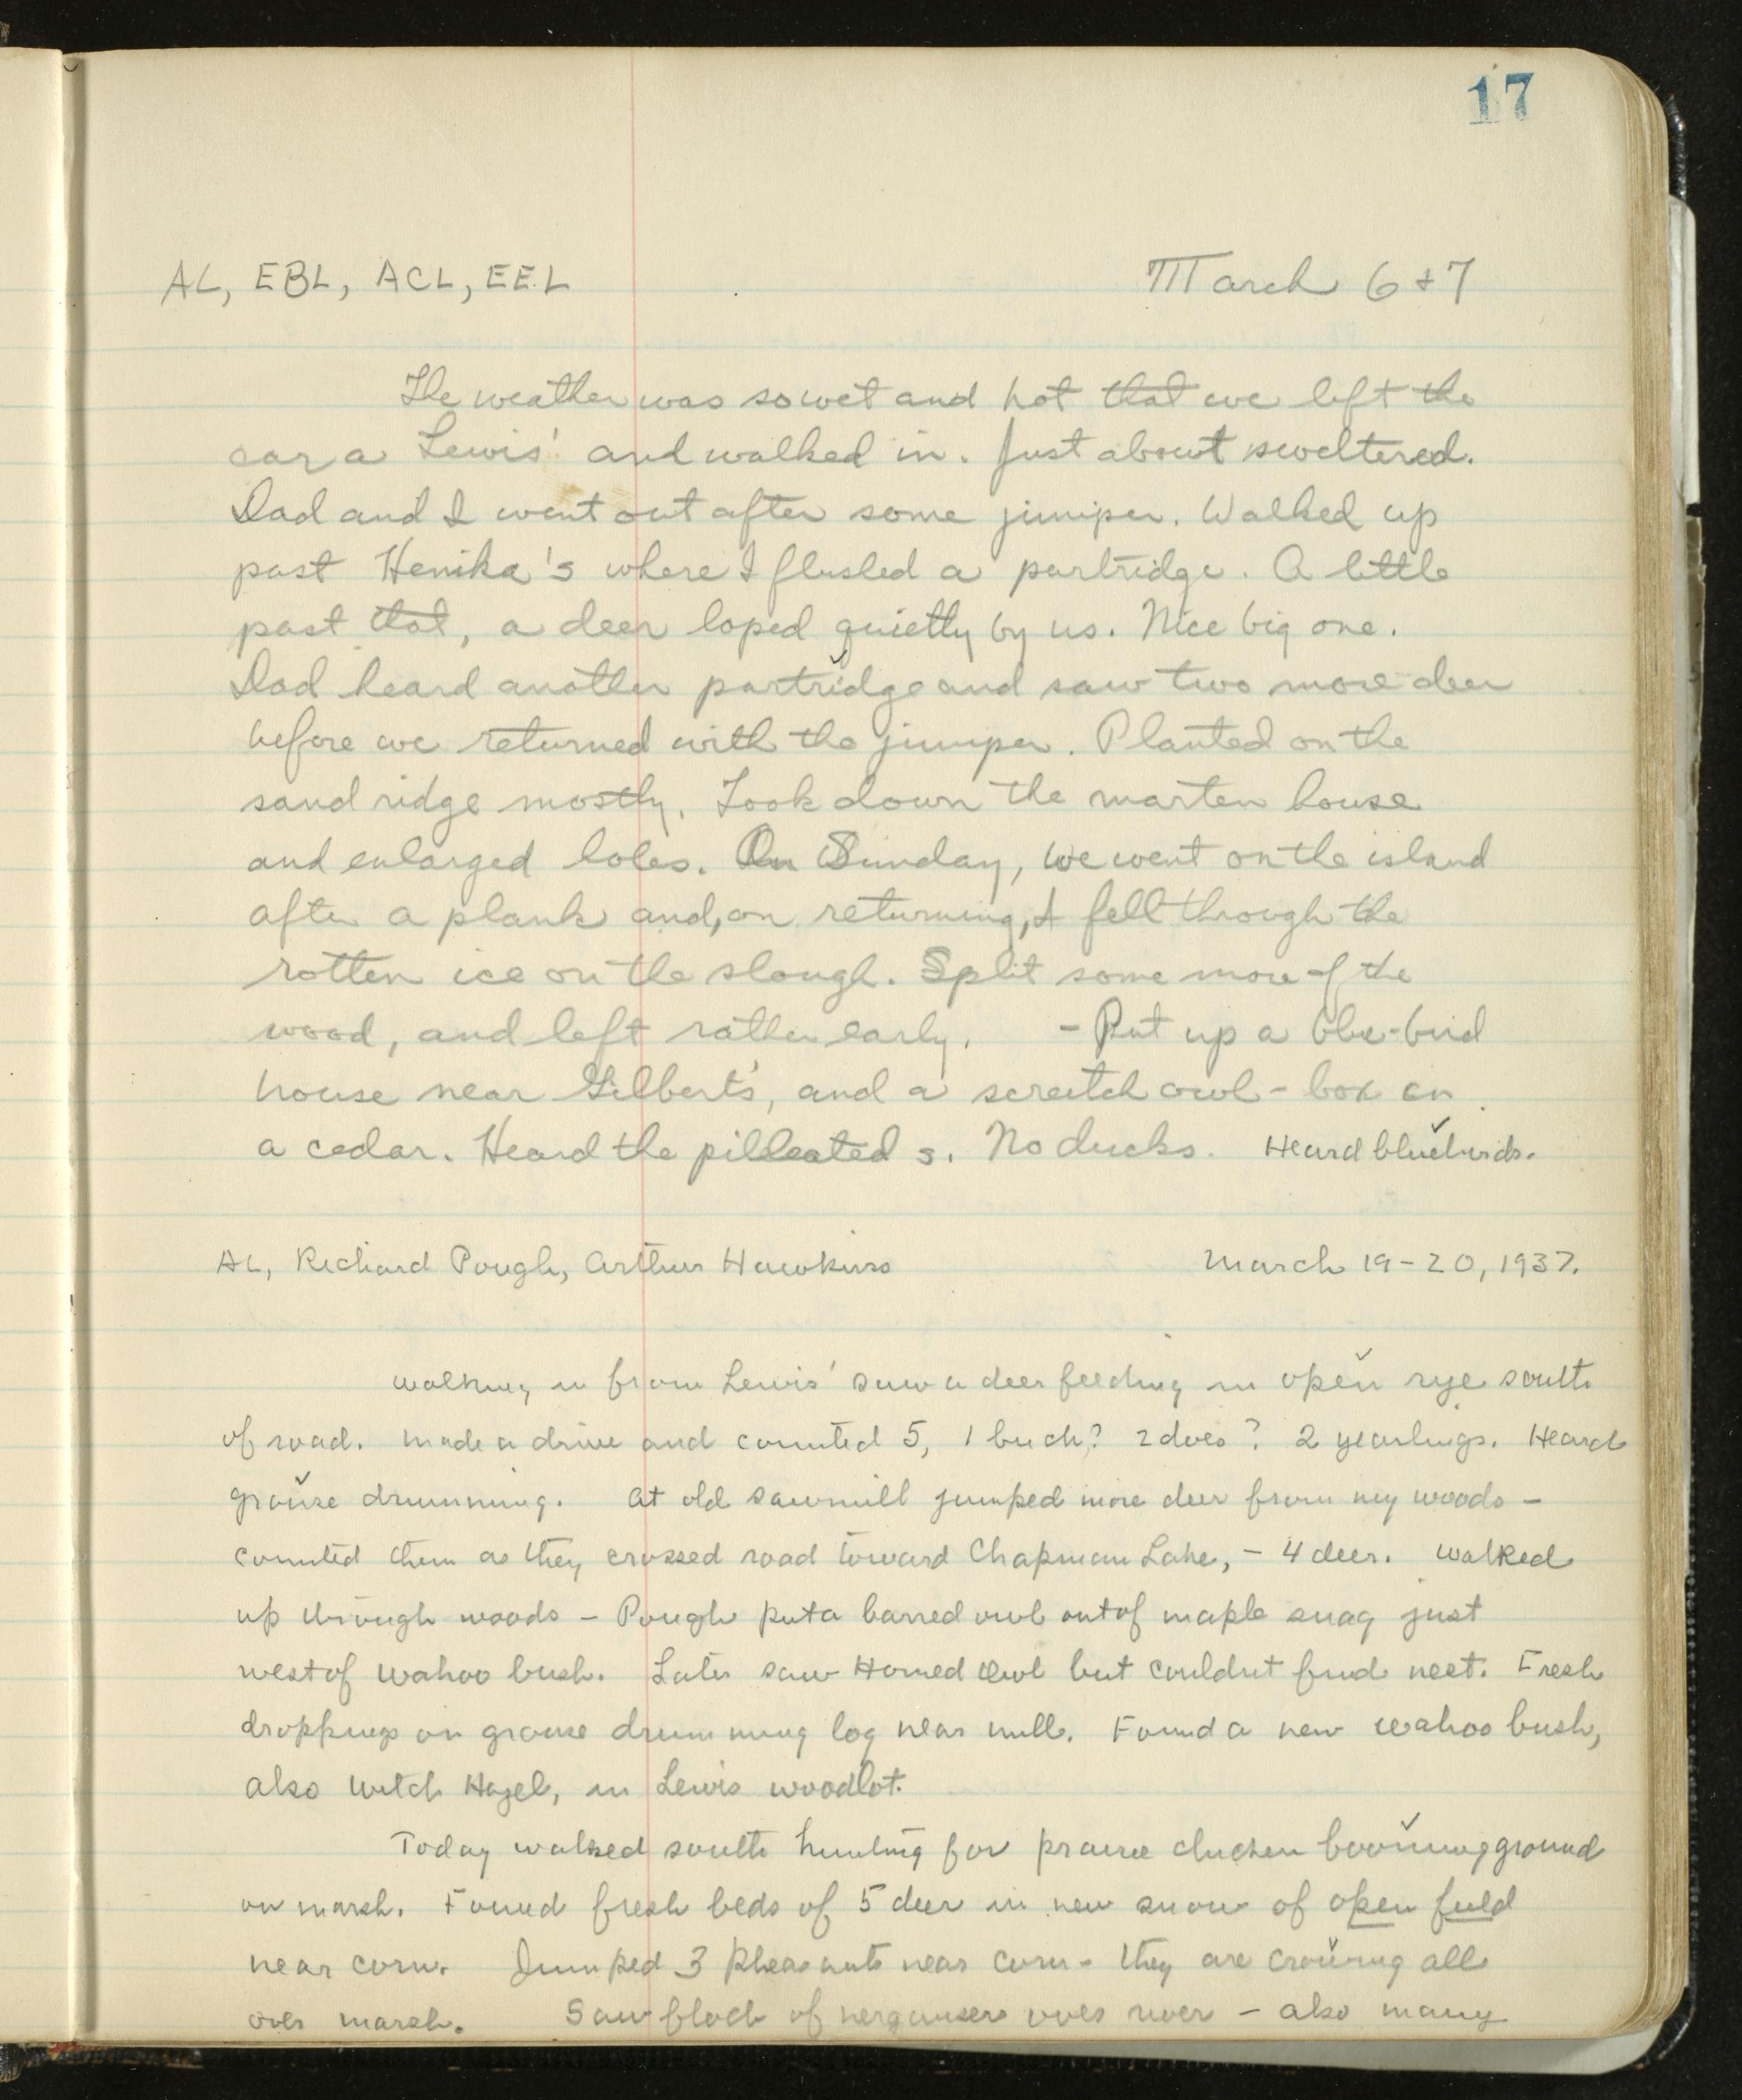 17
AL, EBL, ACL, EEL March 6 + 7
The weather was so wet and hot that we left the
car a Lewis' and walked in. Just about sweltered.
Dad and I went out after some juniper. Walked up
past Henika's where I flushed a partridge. A little
past that, a deer loped quietly by us. Nice big one.
Dad heard another partridge and saw two more deer
before we returned with the juniper. Planted on the
sand ridge mostly. Took down the marten house
and enlarged holes. On Sunday, we went on the island
after a plank and, on returning, I fell through the
rotten ice on the slough. Split some more of the
wood, and left rather early. - Put up a blue-bird
house near Gilbert's, and a screetch owl-box on
a cedar. Heard the pilleated s. No ducks. Heard bluebirds.
AL, Richard Pough, Arthur Hawkins March 19-20, 1937.
Walking in from Lewis' saw a deer feeding in open rye south
of road. Made a drive and counted 5, 1 buck? 2 does? 2 yearlings. Heard
grouse drumming. At old sawmill jumped more deer from my woods -
counted them as they crossed road toward Chapman Lake, - 4 deer. Walked
up through woods - Pough put a barred owl out of maple snag just
west of wahoo bush. Later saw Horned Owl but couldnt find nest. Fresh
droppings on grouse drumming log near mill. Found a new wahoo bush,
also Witch Hazel, in Lewis woodlot.
Today walked south hunting for prairie chicken booming ground
on marsh. Found fresh beds of 5 deer in new snow of open field
near corn. Jumped 3 pheasants near corn - they are crowing all
over marsh. Saw flock of mergansers over river - also many